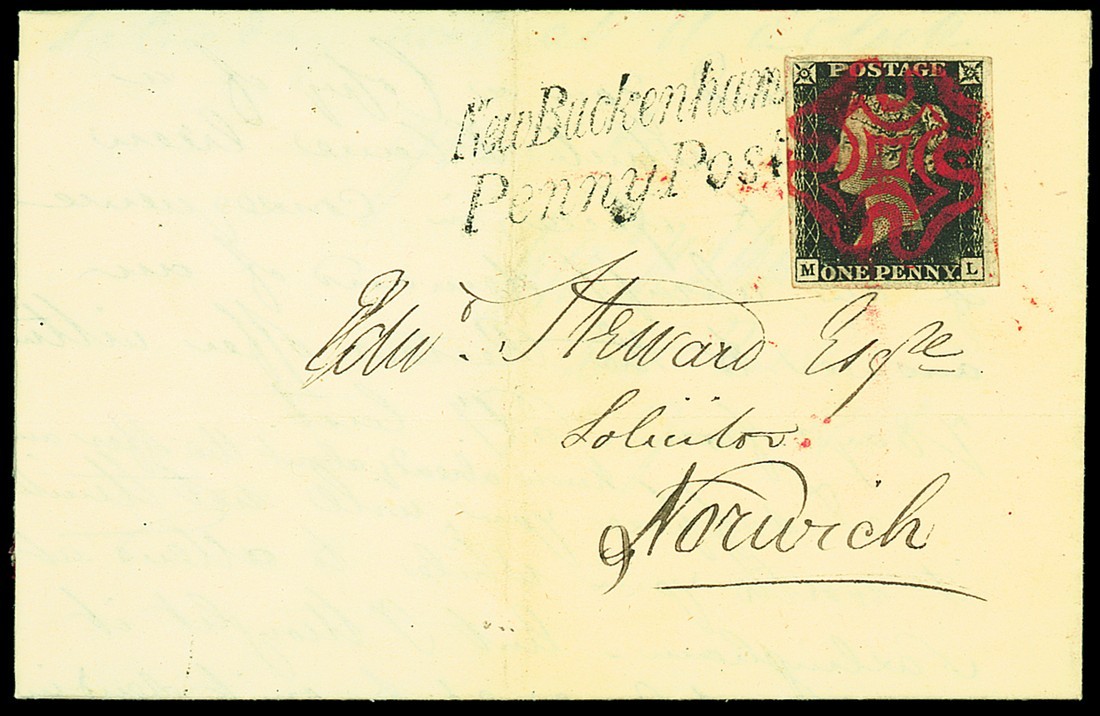 New Buckenham
Penny Post
POSTAGE
M ONE PENNY L
Edwd. Steward Esqre
Solicitor
Norwich